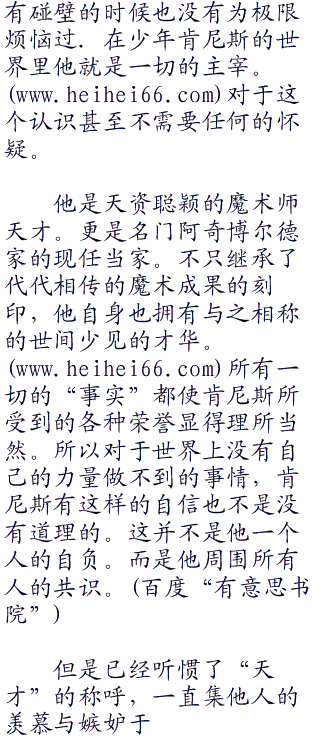 有碰壁的时候也没有为极限
烦恼过．在少年肯尼斯的世
界里他就是一切的主宰。
(www.heihei66.com)对于这
个认识甚至不需要任何的怀
疑。
他是天资聪颖的魔术师
天才。更是名门阿奇博尔德
家的现任当家。不只继承了
代代相传的魔术成果的刻
印，他自身也拥有与之相称
的世间少见的才华。
(www.heihei66.com)所有一
切的“事实”都使肯尼斯所
受到的各种荣誉显得理所当
然。所以对于世界上没有自
己的力量做不到的事情，肯
尼斯有这样的自信也不是没
有道理的。这并不是他一个
人的自负。而是他周围所有
人的共识。(百度“有意思书
院”)
但是已经听惯了“天
才”的称呼，一直集他人的
羡慕与嫉妒于